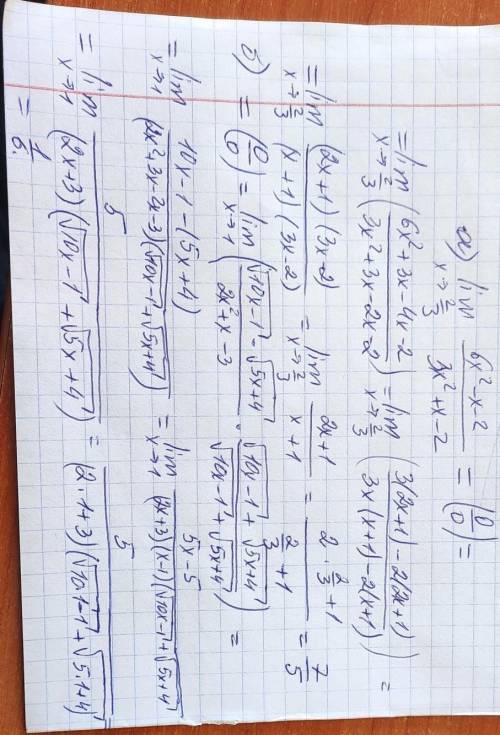 а) lim x→2/3 (6x²-x-2)/(3x²+x-2) = (0/0) =
= lim x→2/3 ((6x²+3x-4x-2)/(3x²+3x-2x-2)) = lim x→2/3 ((3(2x+1)-2(2x+1))/(3x(x+1)-2(x+1))) =
= lim x→2/3 ((2x+1)(3x-2))/((x+1)(3x-2)) = lim x→2/3 (2x+1)/(x+1) = (2·2/3+1)/(2/3+1) = 7/5
б) = (0/0) = lim x→1 ((√10x-1 - √5x+4)/(2x²+x-3) · (√10x-1 + √5x+4)/(√10x-1 + √5x+4)) =
= lim x→1 (10x-1-(5x+4))/((2x²+3x-2x-3)(√10x-1 + √5x+4)) = lim x→1 (5x-5)/((2x+3)(x-1)(√10x-1 + √5x+4))
= lim x→1 5/((2x+3)(√10x-1 + √5x+4)) = 5/((2·1+3)(√10·1-1 + √5·1+4))
= 1/6.